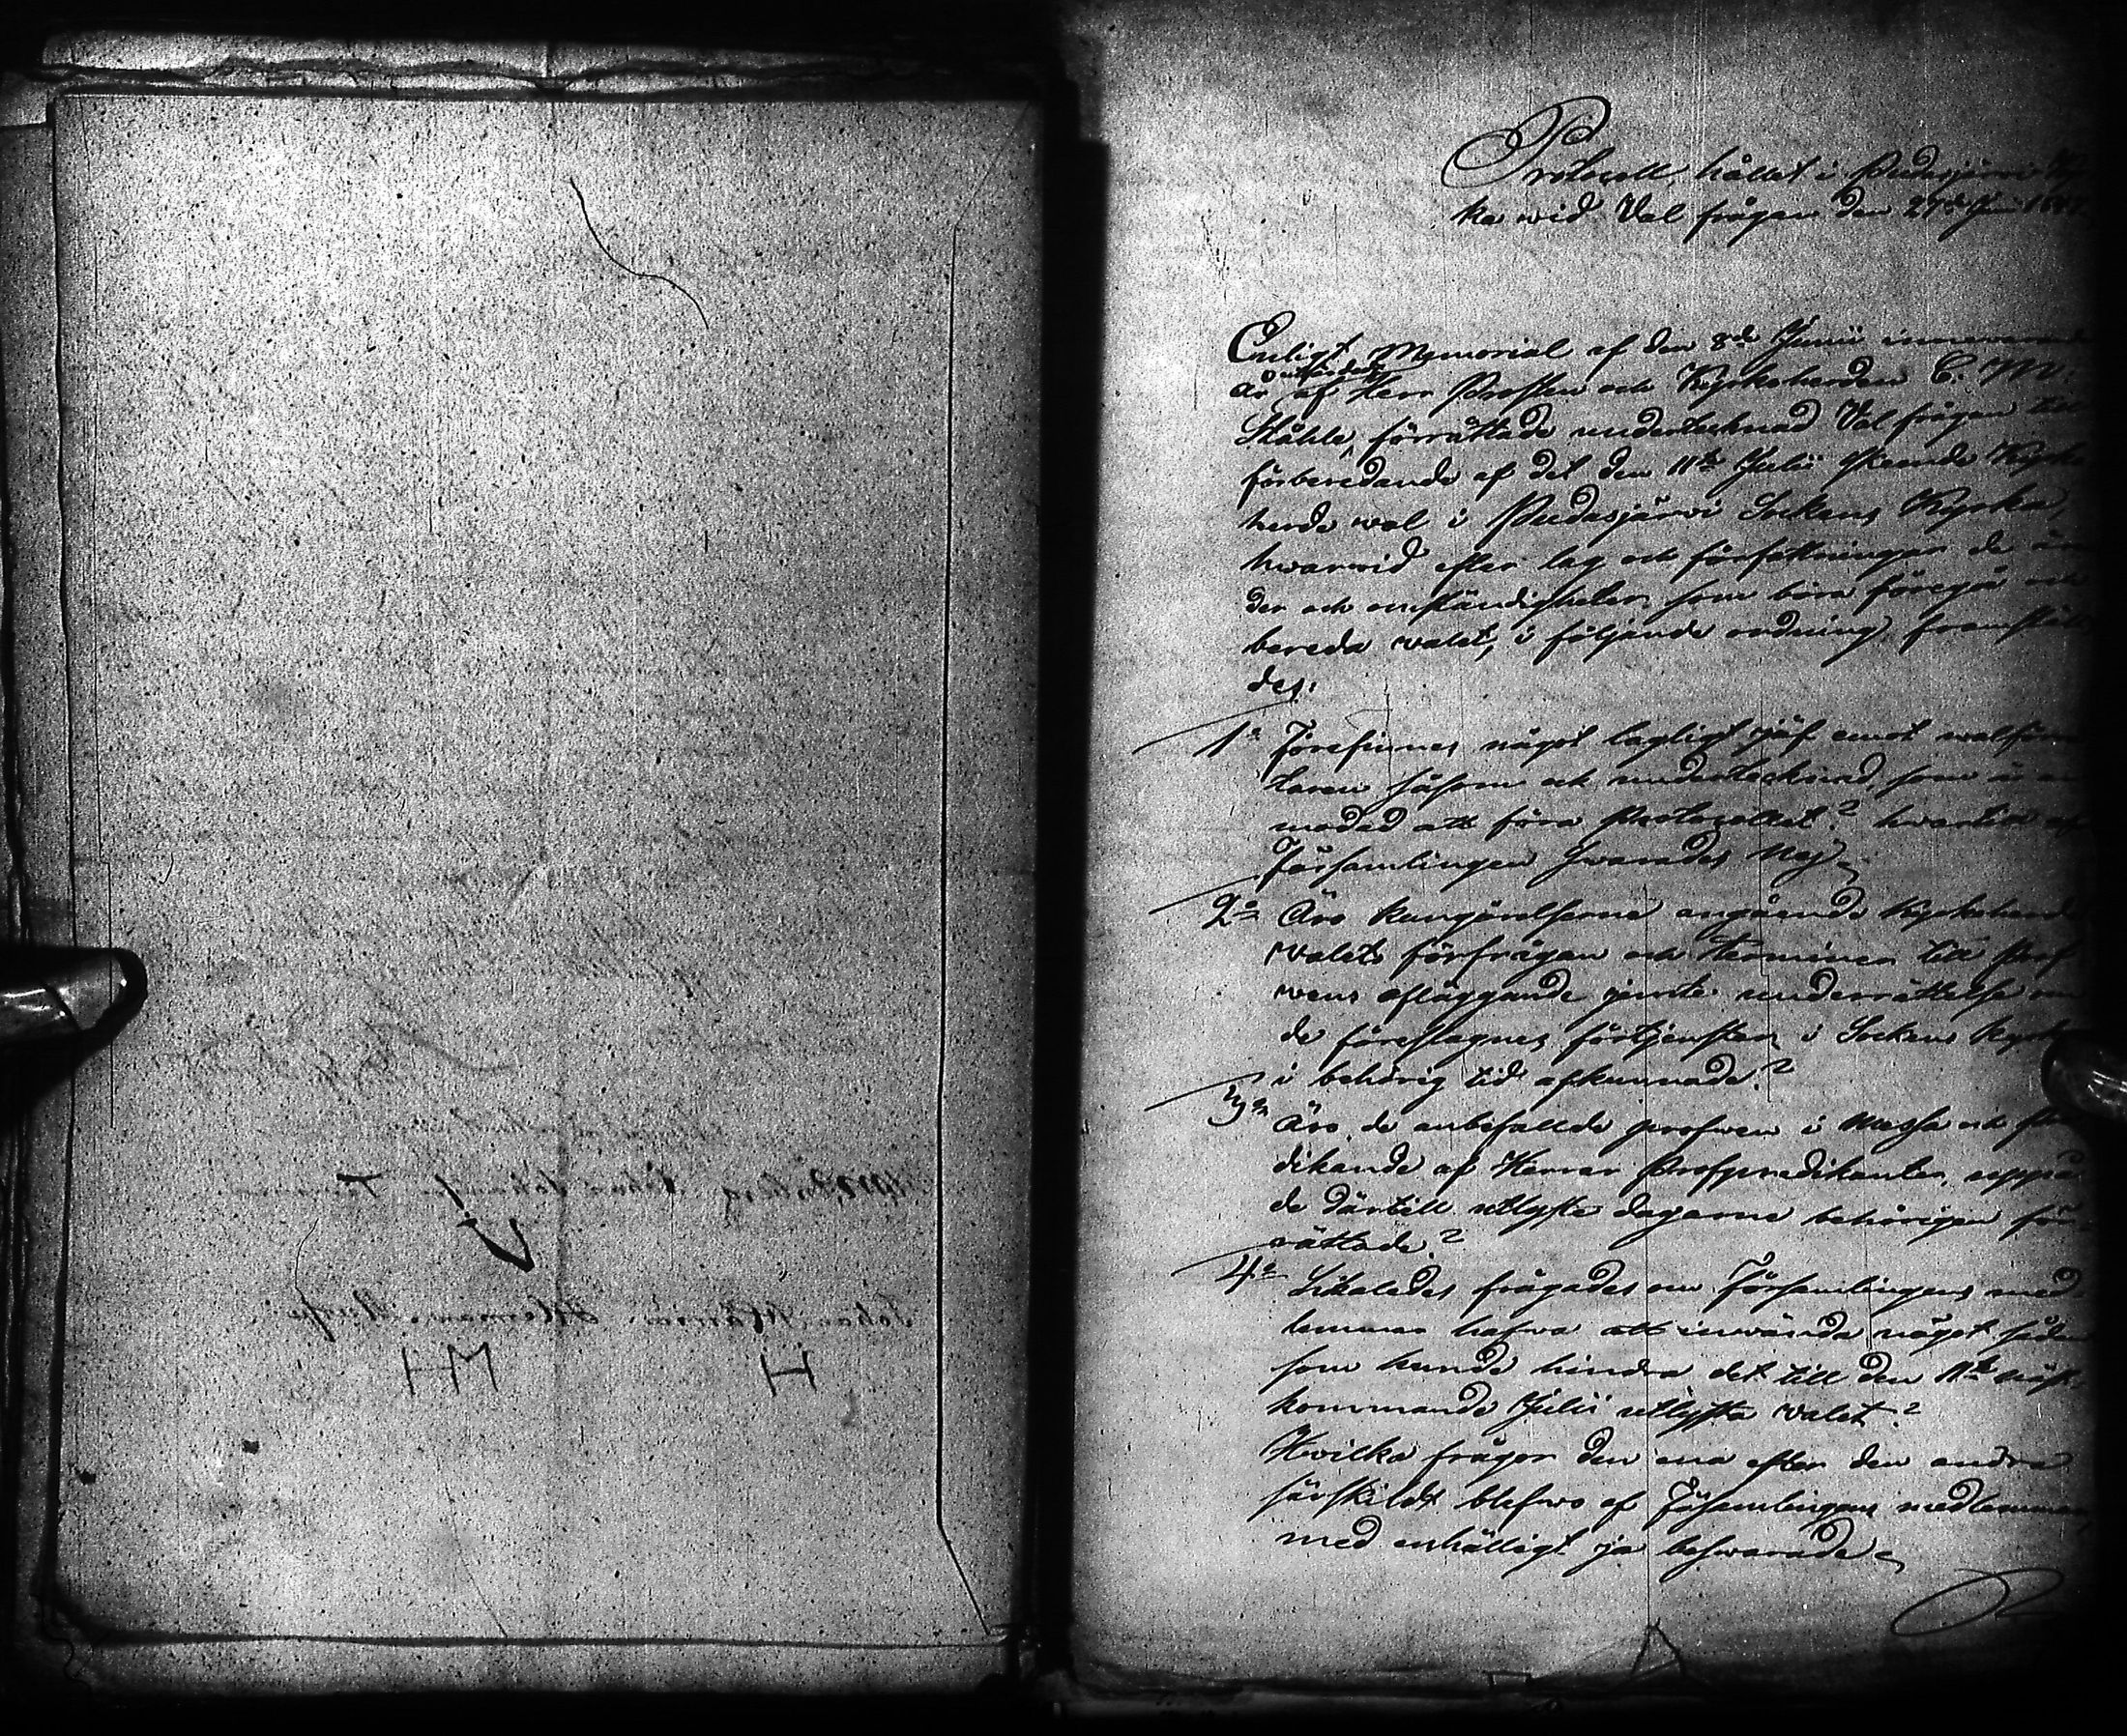 Protocoll, hållet i Pudasjärvi Kyr
ka wid Val frågan den 27de Juni 18
Enligt Memorial af den 8de Junii innevarande
år af Herr Prosten och Kyrkoherden C. M:
Ståhle, förrättade undertecknad Val frågan till
förberedande af det den 11te Julii skeende Kyrko
herde wal i Pudasjärvi Sockens Kyrka,
hwarwid efter lag och författningar de ären
der och omständigheter, som böra föregå och
bereda valet, i följande ordning framstäl
des:
1o Förefinnes något lagligt jäf emot walförrät
taren såsom ock undertecknad, som är an
modad att föra Protocollet? hvartill af
Församlingen swarades Nej
2o Äro kungörelserne angående Kyrkoherde
valets förfrågan och Terminer till Prof
wens afläggande jemte underrättelse om
de föreslagnes förtjenster i Sockens Kyrka
i behörig tid afkunnade?
3o Äro de anbefallde profwen i Messa och pre
dikande af Herrar Profpredikanter, uppå
de därtill utlyste dagarne behörigen för
rättade?
4o Likaledes frågades om Församlingens med
lemmar hafwa att inwända något sådant
som kunde hindra det till den 11te näst
kommande Julii utlysta valet?
Hvilka frågor den ena efter den andra
särskildt blefwo af Församlingens medlemmar
med enhälligt ja beswarade